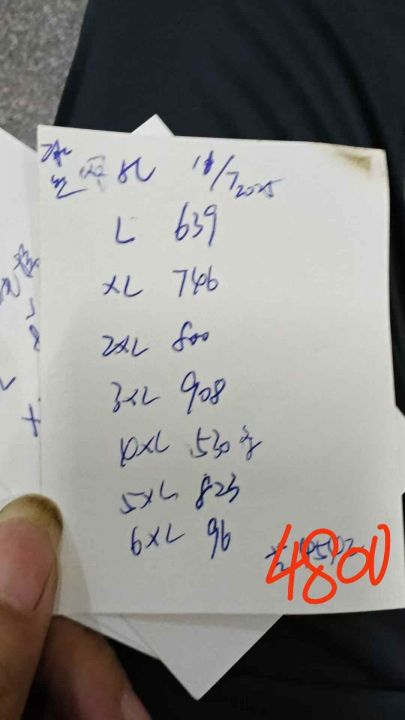 11/7 2025
L 639
XL 746
2XL 800
3XL 908
4XL 530
5XL 823
6XL 96
4800